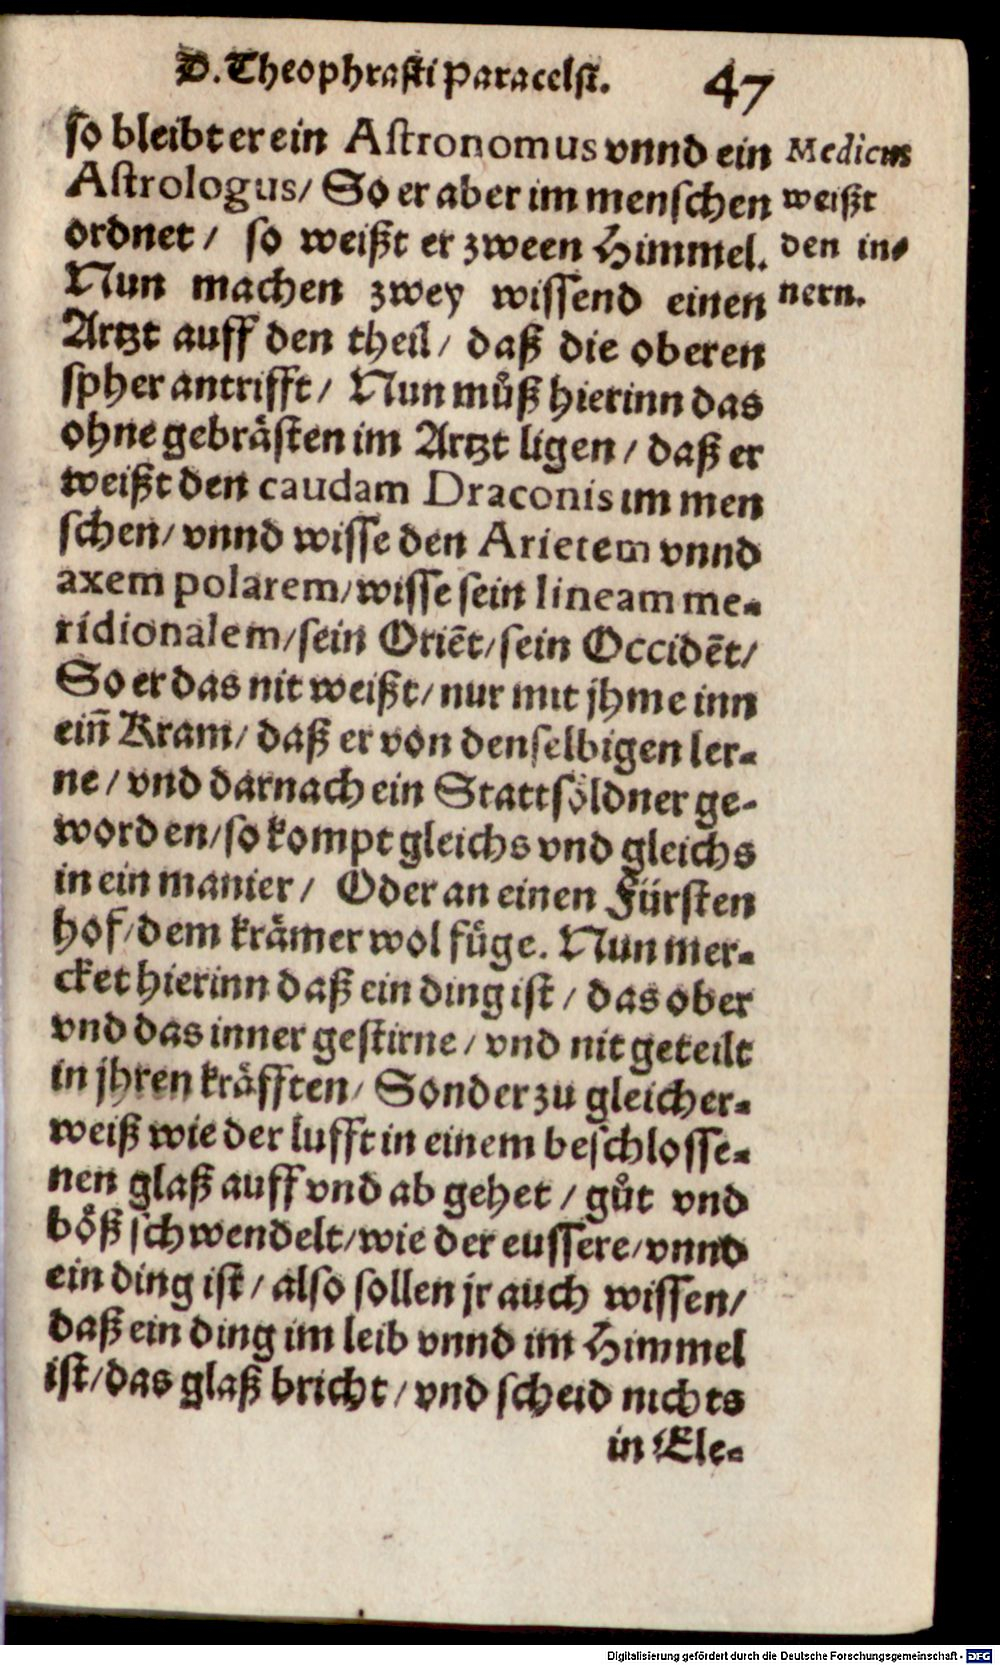 D. Theophrasti Paracelsi. 47
so bleibt er ein Astronomus vnnd ein
Astrologus/ So er aber im menschen
ordnet/ so weißt er zween Himmel.
Nun machen zwey wissend einen
Artzt auff den theil/ daß die oberen
spher antrifft/ Nun můß hierinn das
ohne gebrästen im Artzt ligen/ daß er
weißt den caudam Draconis im men
schen/ vnnd wisse den Arietem vnnd
axem polarem/ wisse sein lineam me-
ridionalem/ sein Oriēt/ sein Occidēt/
So er das nit weißt/ nur mit jhme inn
ein̄ Kram/ daß er von denselbigen ler-
ne/ vnd darnach ein Stattsöldner ge-
worden/ so kompt gleichs vnd gleichs
in ein manier/ Oder an einen Fürsten
hof/ dem krämer wol füge. Nun mer-
cket hierinn daß ein ding ist/ das ober
vnd das inner gestirne/ vnd nit geteilt
in jhren kräfften/ Sonder zu gleicher-
weiß wie der lufft in einem beschlosse-
nen glaß auff vnd ab gehet/ gůt vnd
böß schwendelt/ wie der eussere/ vnnd
ein ding ist/ also sollen jr auch wissen/
daß ein ding im leib vnnd im Himmel
ist/ das glaß bricht/ vnd scheid nichts
in Ele-
Medicus
weißt
den in-
nern.
Digitalisierung gefördert durch die Deutsche Forschungsgemeinschaft - DFG